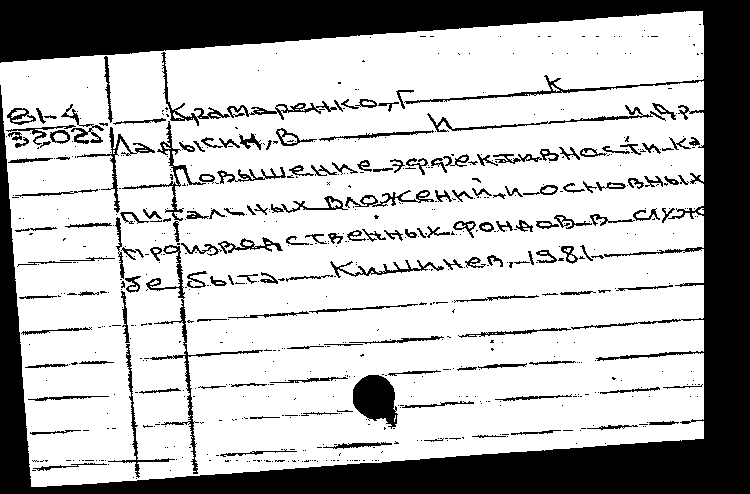 81-4
32025
Крамаренко, Г К
Ладыкин, В И и др
Повышение эффективности ка
питальных вложений и основных
производственных фондов в служ
бе быта Кишинев, 1981